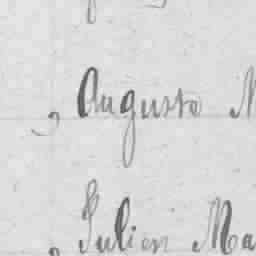 Auguste
Julien Ma